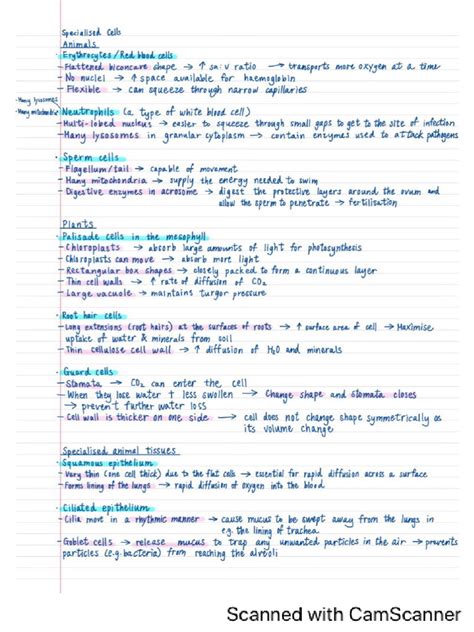 Specialised Cells
Animals
· Erythrocytes / Red blood cells
- Flattened biconcave shape → ↑ sa:v ratio → transports more oxygen at a time
- No nuclei → ↑ space available for haemoglobin
- Flexible → can squeeze through narrow capillaries
- Many lysosomes
- Many mitochondria
· Neutrophils (a type of white blood cell)
- Multi-lobed nucleus → easier to squeeze through small gaps to get to the site of infection
- Many lysosomes in granular cytoplasm → contain enzymes used to attack pathogens
· Sperm cells
- Flagellum/tail → capable of movement
- Many mitochondria → supply the energy needed to swim
- Digestive enzymes in acrosome → digest the protective layers around the ovum and
allow the sperm to penetrate → fertilisation
Plants
· Palisade cells in the mesophyll
- Chloroplasts → absorb large amounts of light for photosynthesis
- Chloroplasts can move → absorb more light
- Rectangular box shapes → closely packed to form a continuous layer
- Thin cell walls → ↑ rate of diffusion of CO₂
- Large vacuole → maintains turgor pressure
· Root hair cells
- Long extensions (root hairs) at the surfaces of roots → ↑ surface area of cell → Maximise
uptake of water & minerals from soil
- Thin cellulose cell wall → ↑ diffusion of H₂O and minerals
· Guard cells
- Stomata → CO₂ can enter the cell
- When they lose water + less swollen → Change shape and stomata closes
→ prevent further water loss
- Cell wall is thicker on one side → cell does not change shape symmetrically as
its volume change
Specialised animal tissues
· Squamous epithelium
- Very thin (one cell thick) due to the flat cells → essential for rapid diffusion across a surface
- Forms lining of the lungs → rapid diffusion of oxygen into the blood
· Ciliated epithelium
- Cilia move in a rhythmic manner → cause mucus to be swept away from the lungs in
e.g. the lining of trachea
- Goblet cells → release mucus to trap any unwanted particles in the air → prevents
particles (e.g. bacteria) from reaching the alveoli
Scanned with CamScanner